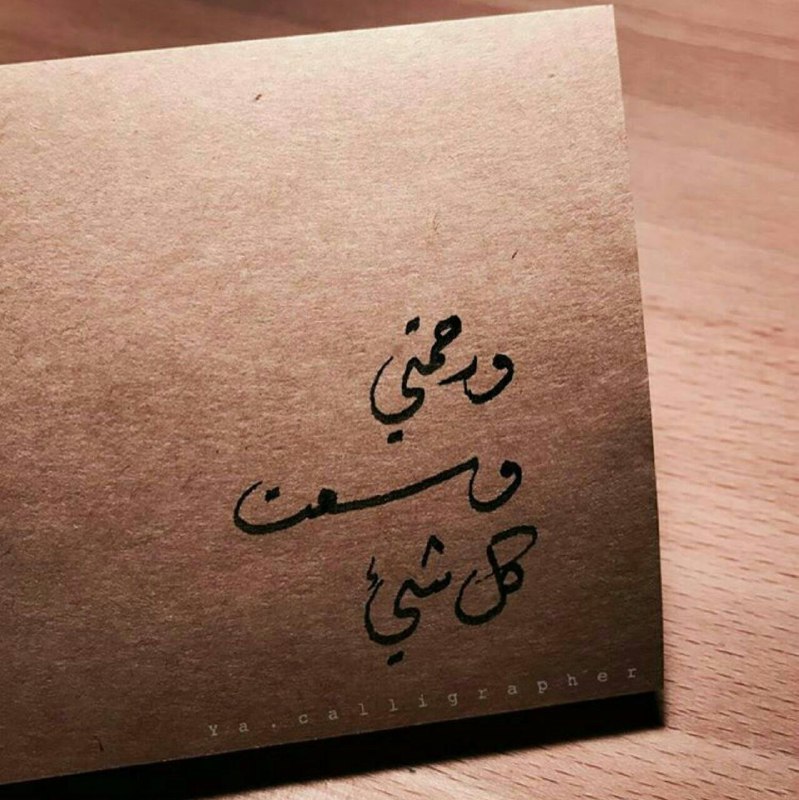 ورحمتي
وسعت
كل شيئ
Ya.calligrapher